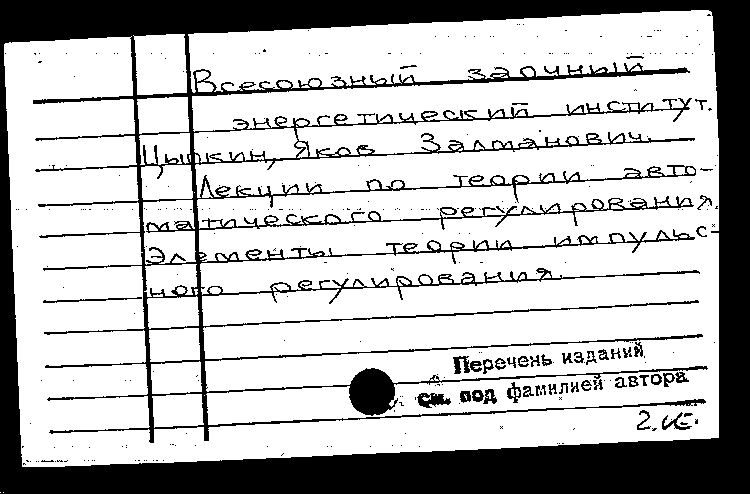 Всесоюзный заочный
энергетический институт.
Цыпкин, Яков Залманович.
Лекции по теории авто-
матического регулирования.
Элементы теории импульс-
ного регулирования.
Перечень изданий
см. под фамилией автора